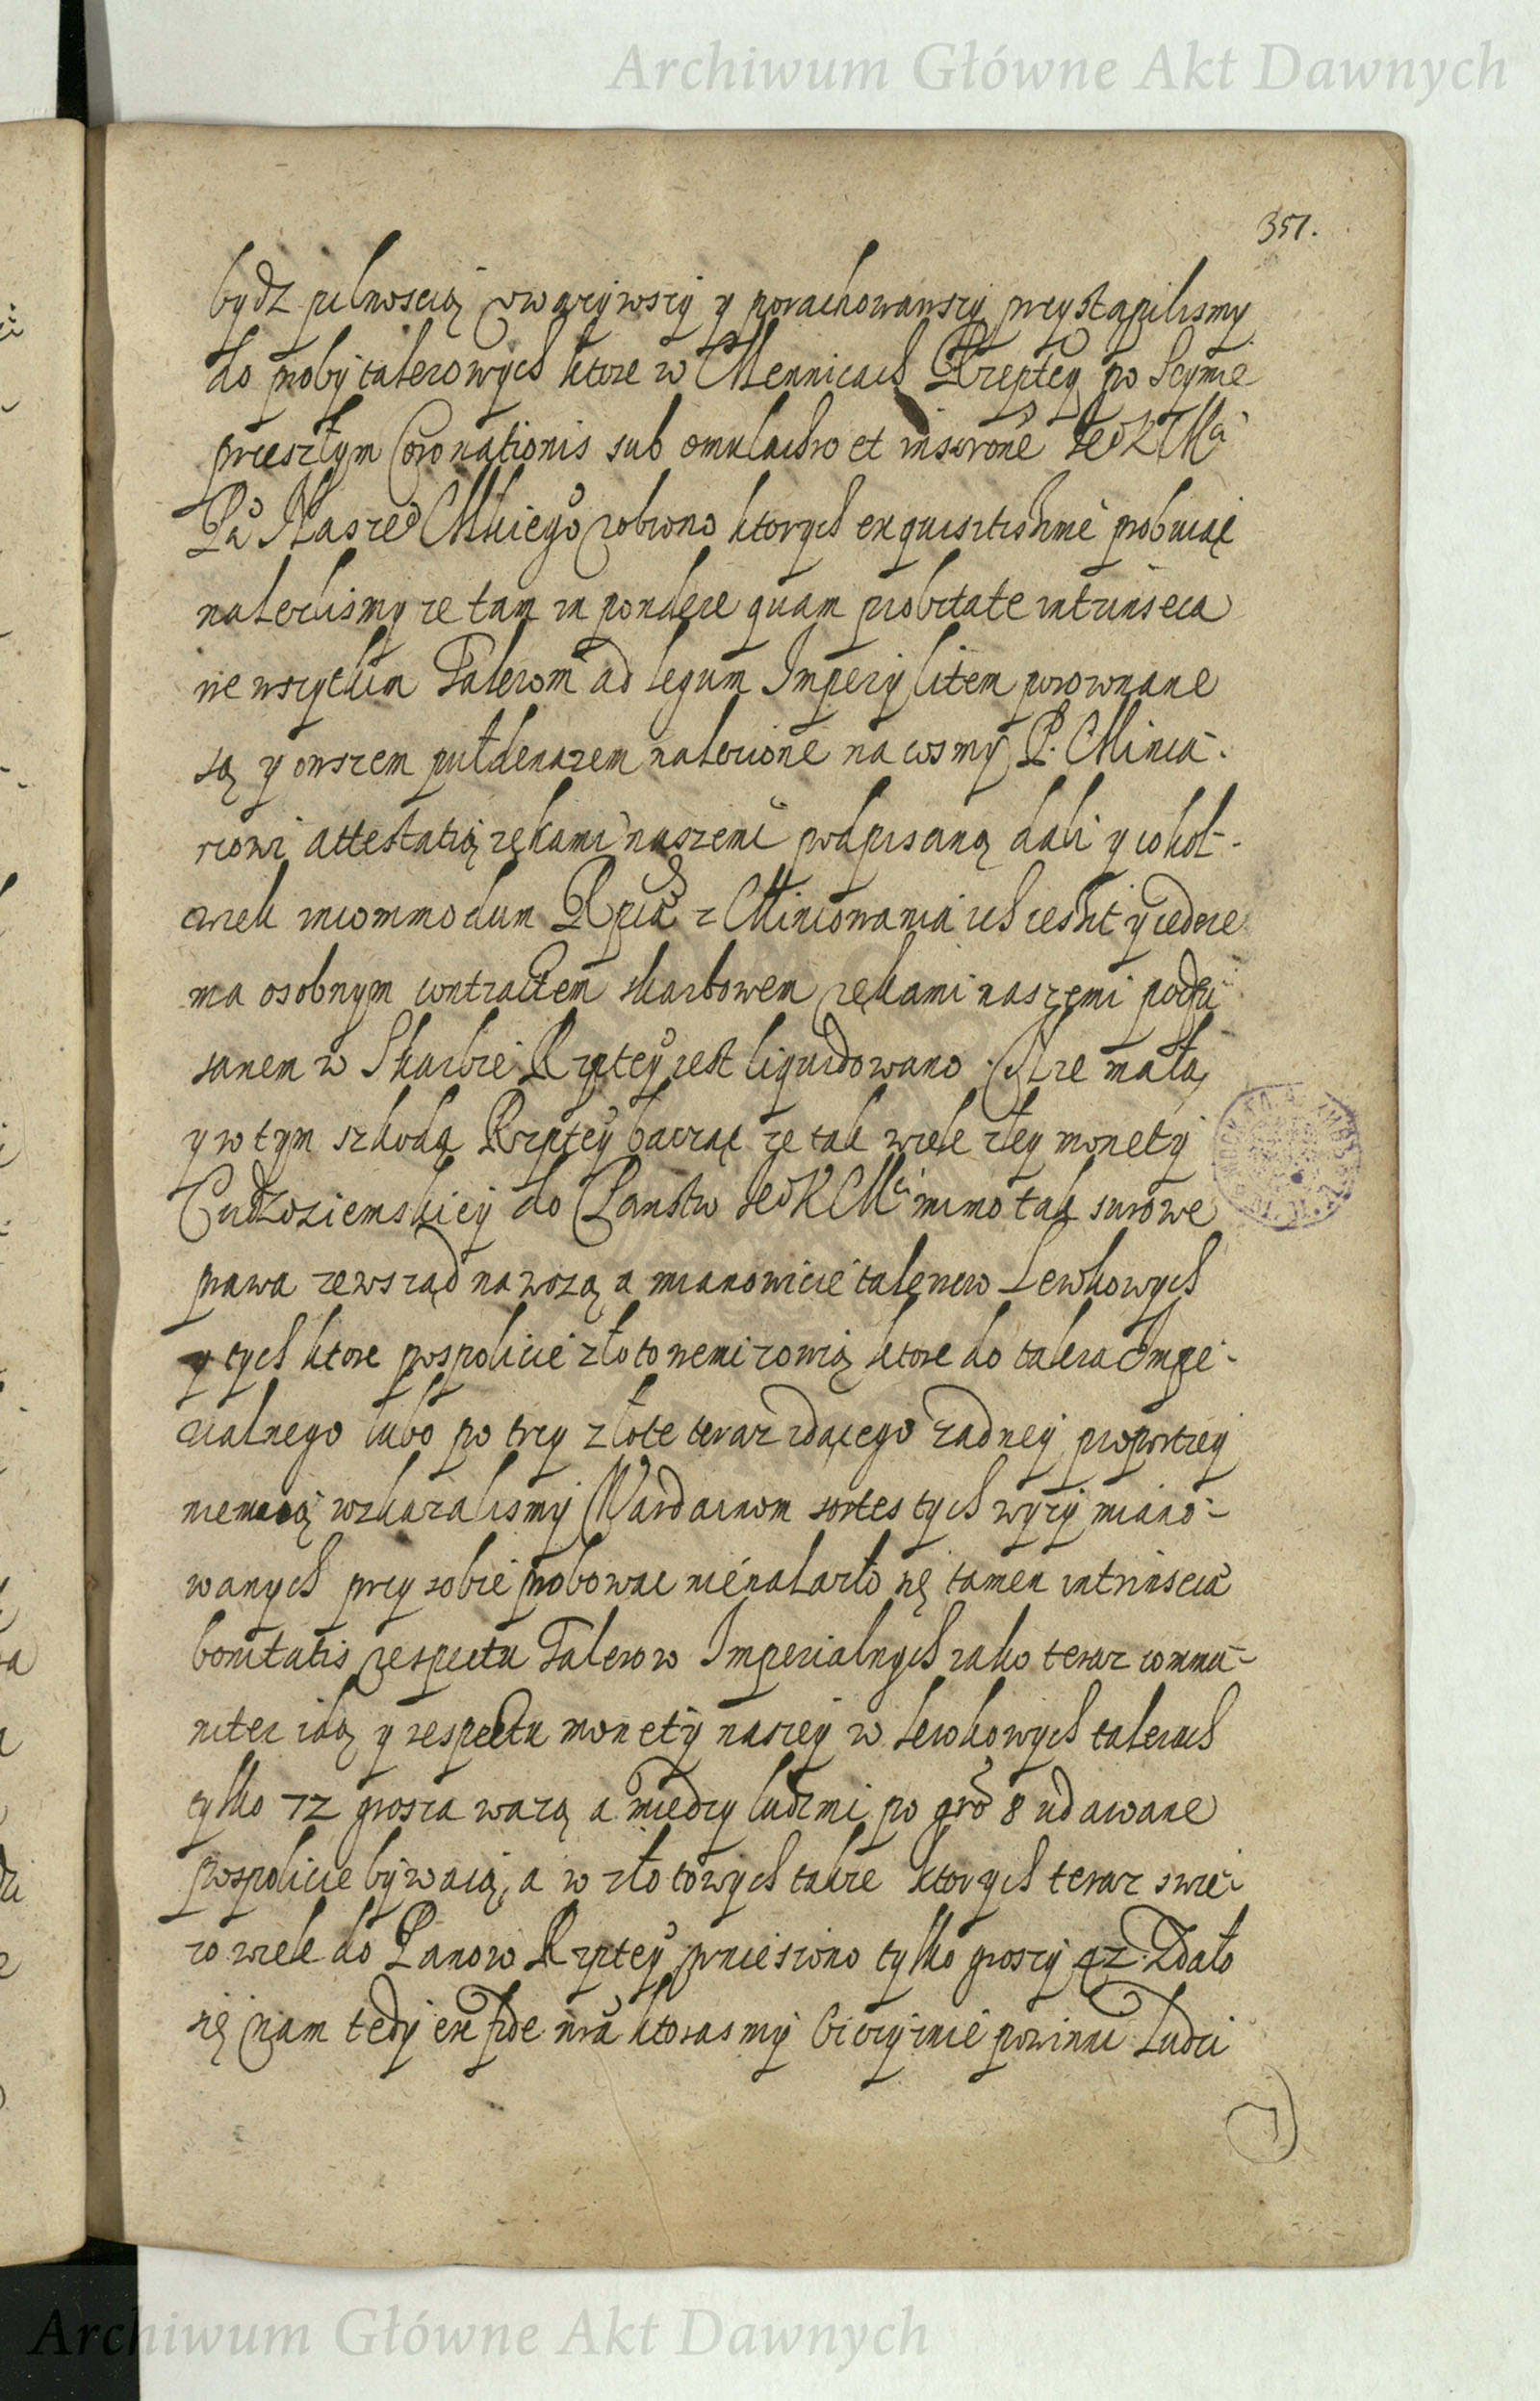 Archiwum Główne Akt Dawnych
351.
bydz pilnoscią uwazywszy y porachowawszy przystąpilismy
do proby talerowych ktore w Mennicach Rzeptey po Seymie
przeszłym Coronationis sub et Je° K Mci
Pa Nasze° Mciego robiono ktorych exquisitissime probuiąc
nalezlismy ze tam in pondere quam probitate intrinseca
we wszytkim Talerom ad legum Imperij litem porownane
są y owszem pułdenarem nalezione na cosmy P. Minca-
rzowi attestatią rękami naszemi podpisaną dali y cokol-
wiek incommodum Rpca z Mincowania ich zeszłt y cedere
ma osobnym contractem skarbowem rękami naszemi podpi
sanem w Skarbie Rzptey iest liquidowano. A ze małą
y w tym szkodą Rzptey bacząc ze tak wiele złey monety
Cudzoziemskiey do Panstw Je° K Mci mimo tak surowe
prawa zewsząd nawozą a mianowicie talerow Lewkowych
y tych ktore pospolicie złotowemi zowią ktore do talera Impe-
rialnego lubo po trzy złote teraz idącego zadney proportiey
niemaią wskazalismy Wardainom sortes tych wyzy miano-
wanych przy sobie probowac nienalazło się tamen intrinseca
bonitatis respectu Talerow Imperialnych iako teraz commu-
niter idą y respectu monety naszey w Lewkowych talerach
tylko 72 grosza wazą a miedzy ludzmi po gro 8 udawane
pospolicie bywaią, a w złotowych takze ktorych teraz swie-
zo wiele do Panow Rzptey wniesiono tylko groszy 42. Zdało
się nam tedy ex fide nra ktorasmy powinni Ludzi
Archiwum Główne Akt Dawnych